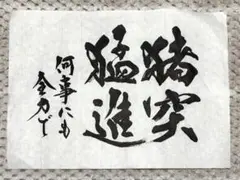 猪突
猛進
何事にも
全力で